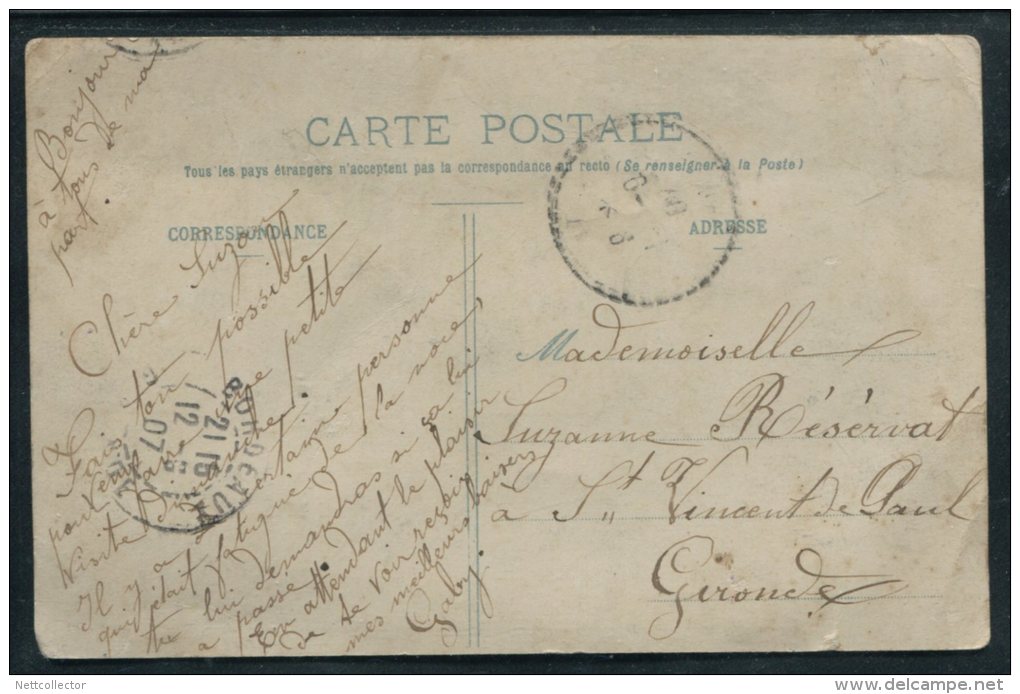 CARTE POSTALE
Tous les pays étrangers n'acceptent pas la correspondance au recto (Se renseigner à la Poste)
CORRESPONDANCE
ADRESSE
à Bonjour
à tous de ma
part.
Chère Suzon
Fais ton possible
pour venir faire une petite
visite Dimanche.
Il y a certaine personne
qui était fatiguée de la noce,
tu lui demandras si ça lui
a passé.
En attendant le plaisir
de te voir reçois
mes meilleurs baisers
Gaby.
Mademoiselle
Suzanne Réservat
à St Vincent de Paul
Gironde
BORDEAUX
21 15
12
07
Nettcollector
delcampe.net